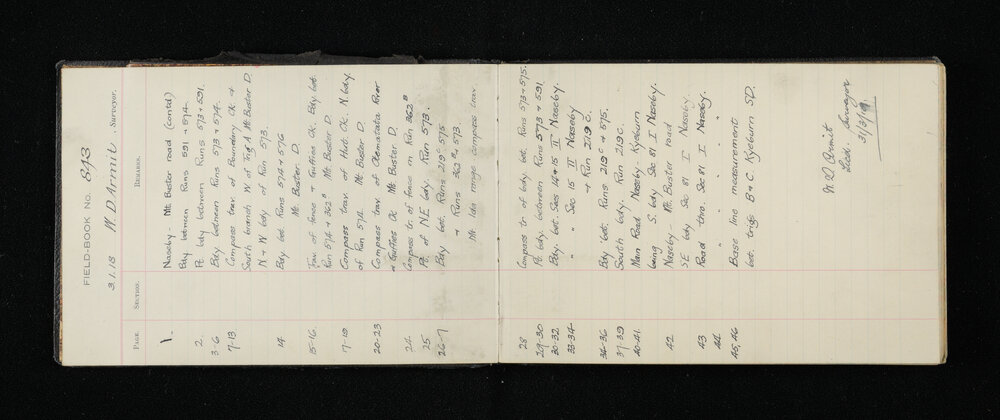 FIELD-BOOK No. 843
3.1.18 W. D. Armit, Surveyor.
PAGE. SECTION. REMARKS.
1. Naseby - Mt. Buster road (contd)
Bdy between Runs 591 + 574.
2. Pt. bdy between Runs 573 + 591.
3-6 Bdy between Runs 573 + 574.
7-13 Compass trav. of Boundary Ck. +
South branch W of Trig A Mt Buster D.
N + W bdy. of Run 573.
14. Bdy bet. Runs 574 + 576
Mt. Buster D.
15-16. Trav. of fence + Guffies Ck. Bdy bet.
Run 574 + 362ᴮ Mt Buster D.
17-19 Compass trav. of Hort Ck. N. bdy.
of Run 574. Mt Buster D.
20-23 Compass trav. of River
+ Guffies Ck Mt Buster D.
24. Compass tr. of fence on Run 362ᴮ
25 Pt. of NE bdy. Run 573.
26-7 Bdy bet. Runs 219ᶜ 575
+ Runs 362ᴮ + 573.
Mt Ida range compass trav.
28 Compass tr of bdy bet. Runs 573 + 575.
29-30 Pt. bdy. between Runs 573 + 591.
30-32 Bdy. bet. Secs 14 + 15 II Naseby.
33-34 " " Sec 15 II Naseby
+ Run 219 C.
34-36 Bdy bet. Runs 219 C + 575.
37-39 South bdy. Run 219 C.
40-41. Main Road Naseby Kyeburn
being S. bdy Sec 81 I Naseby.
42 Naseby - Mt. Buster road
SE bdy Sec 81 I Naseby.
43 Road thro. Sec 81 I Naseby.
44. " " " "
45, 46 Base line measurement
bet. trigs B + C Kyeburn SD.
W. D. Armit
Surveyor
31/3/19